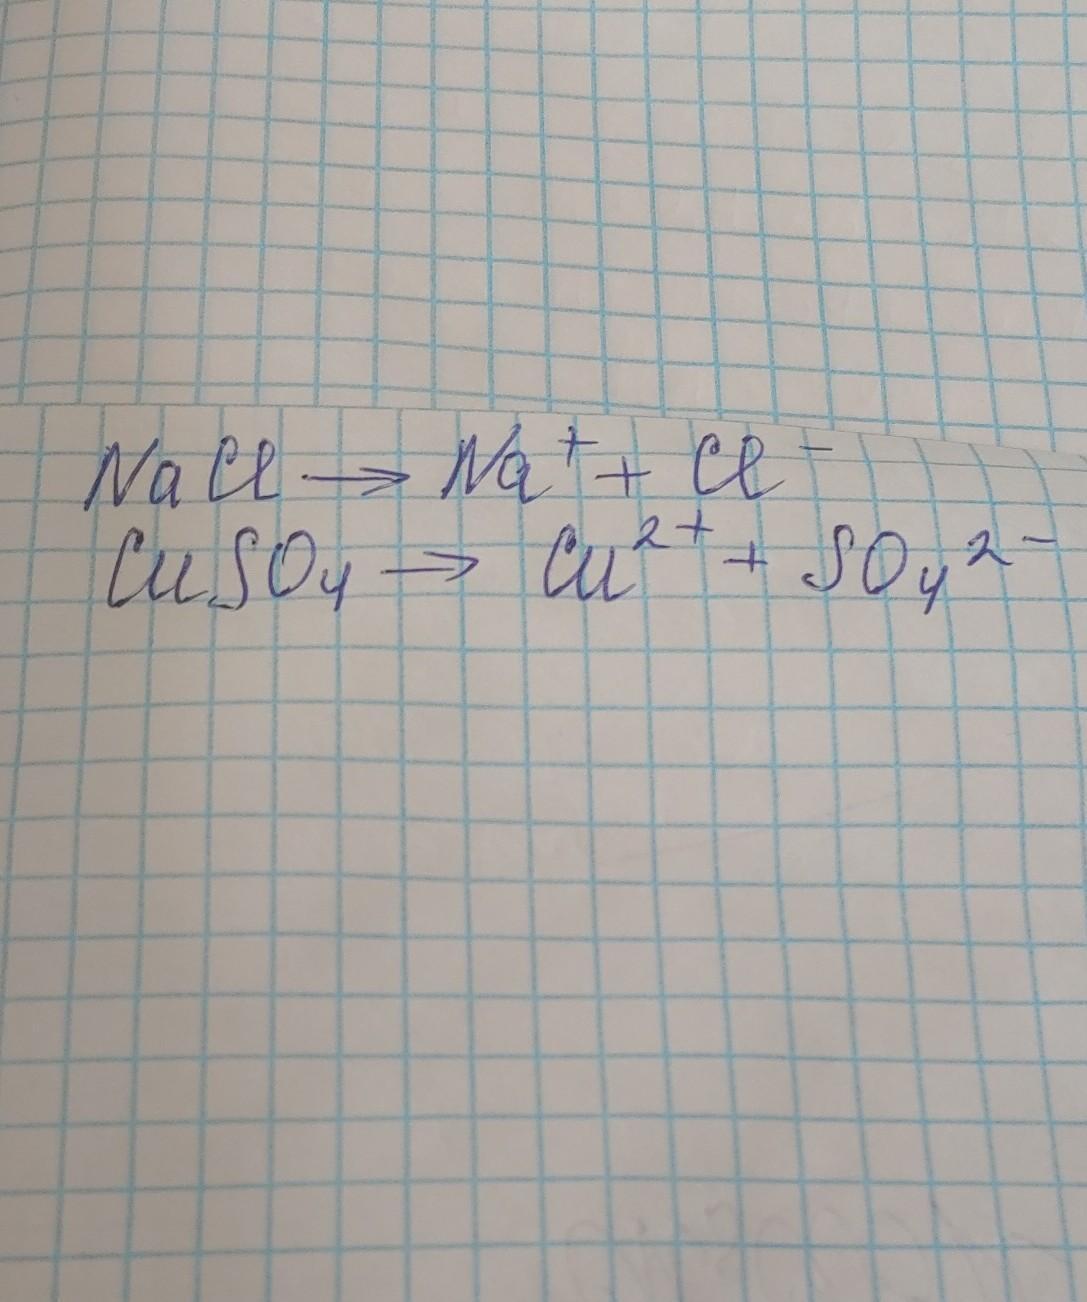 NaCl → Na⁺ + Cl⁻
CuSO₄ → Cu²⁺ + SO₄²⁻